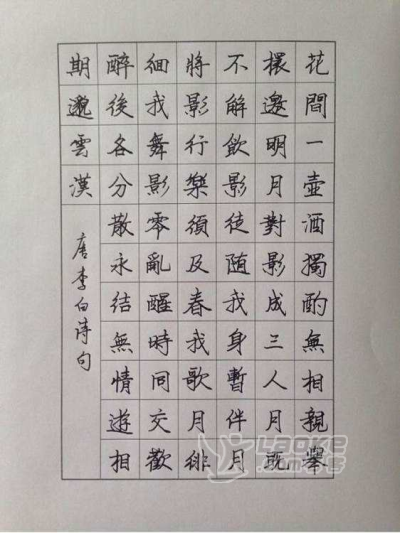 花間一壺酒獨酌無相親舉
桮邀明月對影成三人月既
不解飲影徒随我身暫伴月
將影行樂須及春我歌月徘
徊我舞影零亂醒時同交歡
醉後各分散永結無情遊相
期邈雲漢
唐李白诗句